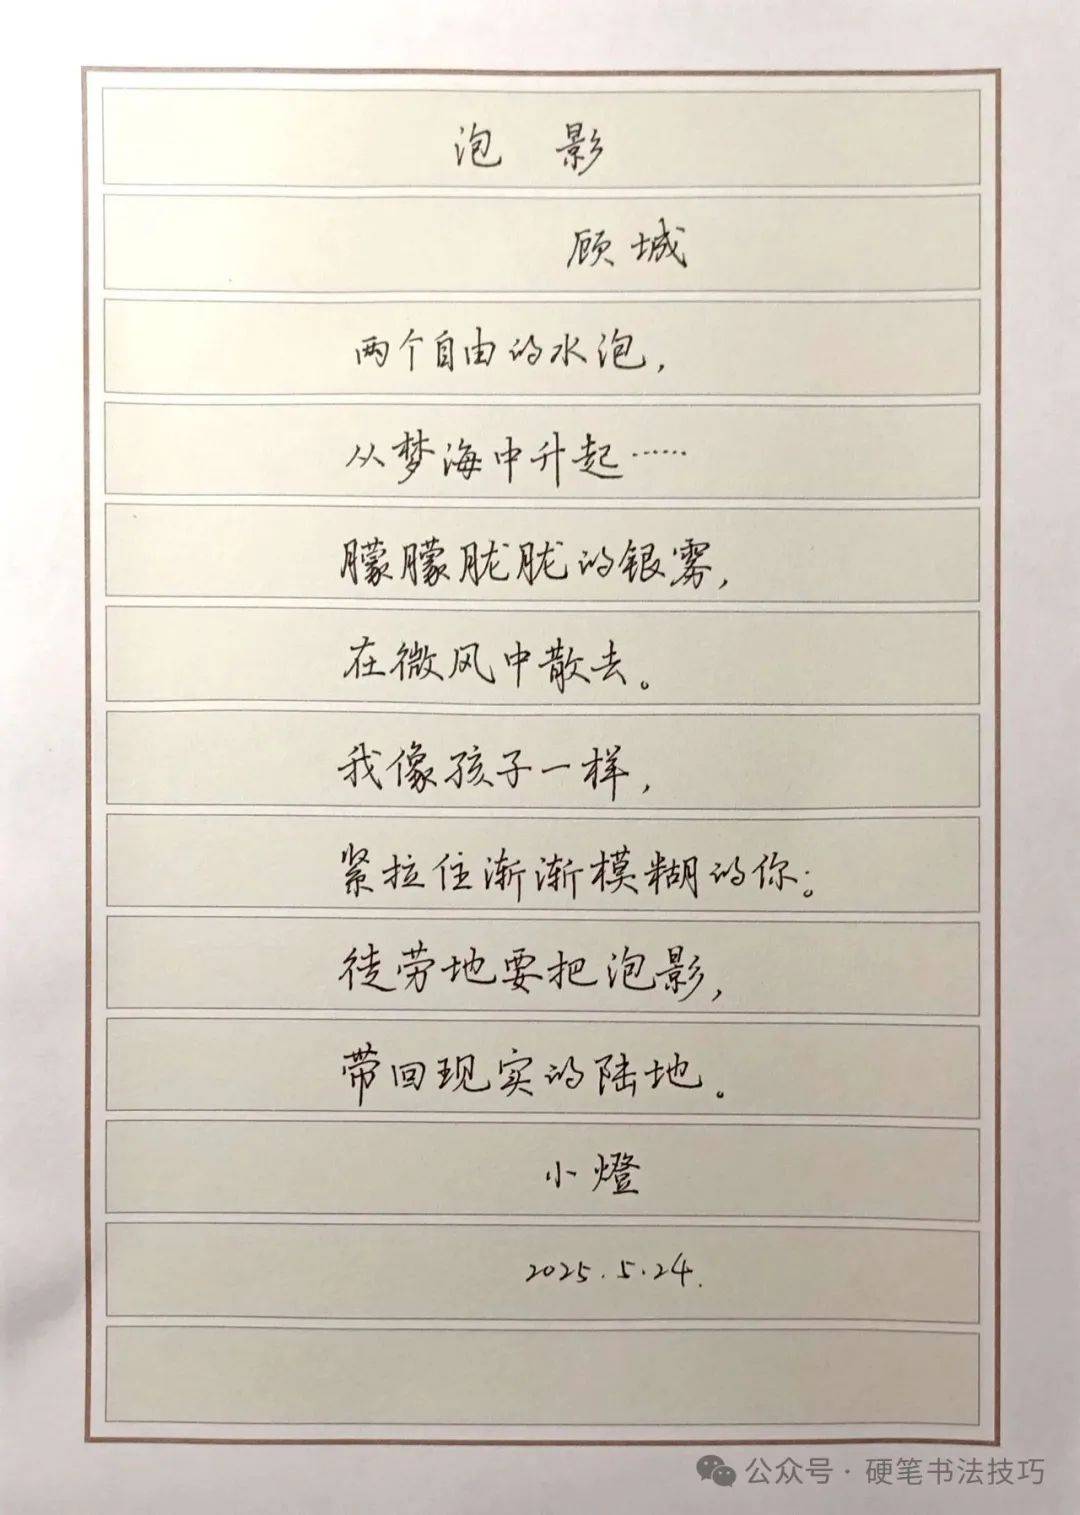 泡影
顾城
两个自由的水泡，
从梦海中升起……
朦朦胧胧的银雾，
在微风中散去。
我像孩子一样，
紧拉住渐渐模糊的你。
徒劳地要把泡影，
带回现实的陆地。
小燈
2025.5.24.
公众号·硬笔书法技巧